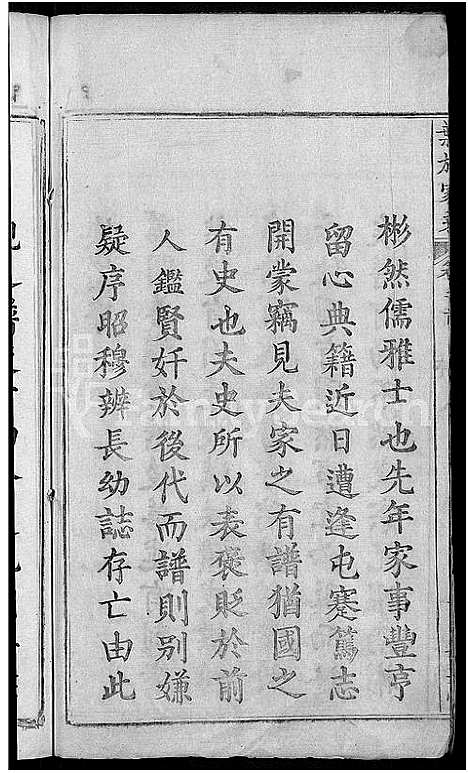 彬然儒雅士也先年家事豐亨
留心典籍近日遭逢屯蹇篤志
開蒙竊見夫家之有譜猶國之
有史也夫史所以表褒貶於前
人鑑賢奸於後代而譜則別嫌
疑序昭穆辨長幼誌存亡由此